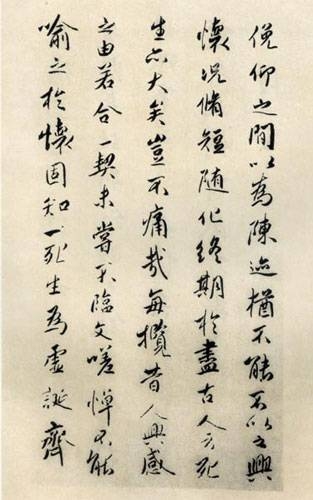 俛仰之間以為陳迹猶不能不以之興
懷況脩短随化終期於盡古人云死
生亦大矣豈不痛哉每攬昔人興感
之由若合一契未嘗不臨文嗟悼不能
喻之於懷固知一死生為虛誕齊